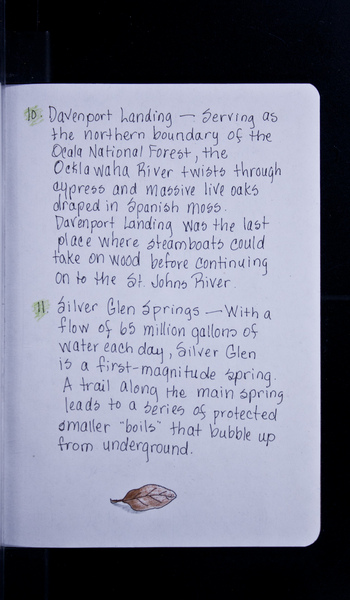 10. Davenport Landing — Serving as
the northern boundary of the
Ocala National Forest, the
Ocklawaha River twists through
cypress and massive live oaks
draped in Spanish moss.
Davenport Landing was the last
place where steamboats could
take on wood before continuing
on to the St. Johns River.
11. Silver Glen Springs — With a
flow of 65 million gallons of
water each day, Silver Glen
is a first-magnitude spring.
A trail along the main spring
leads to a series of protected
smaller "boils" that bubble up
from underground.